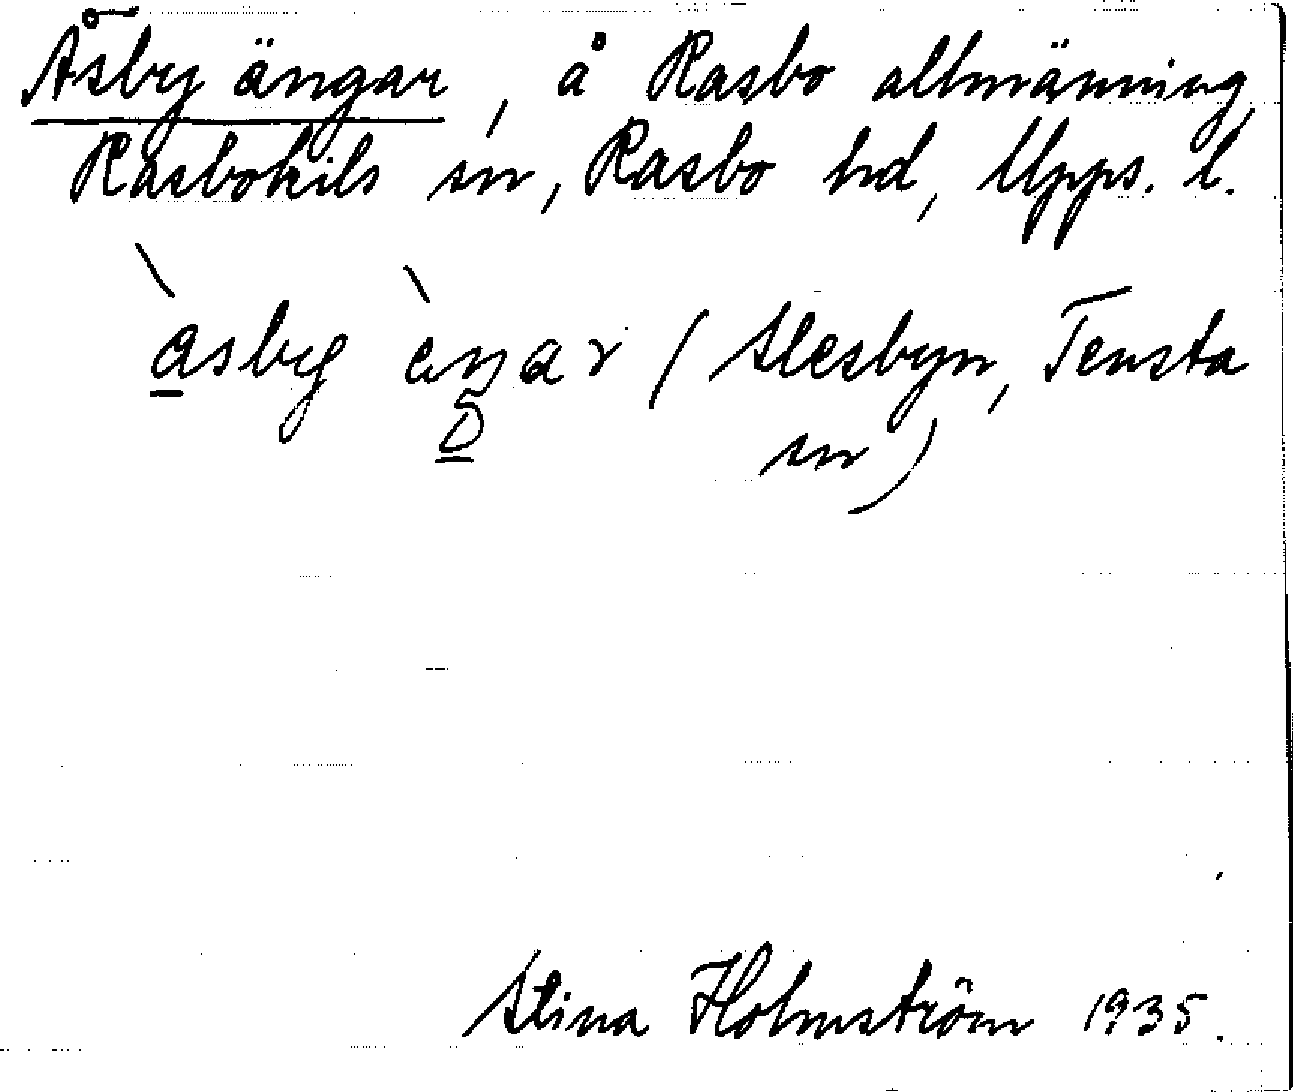 Åsby ängar, å Rasbo allmänning
Rasbokils sn, Rasbo hd, Upps. l.
àsby èŋar (Slesbyn, Tensta
sn)
Stina Holmström 1935.